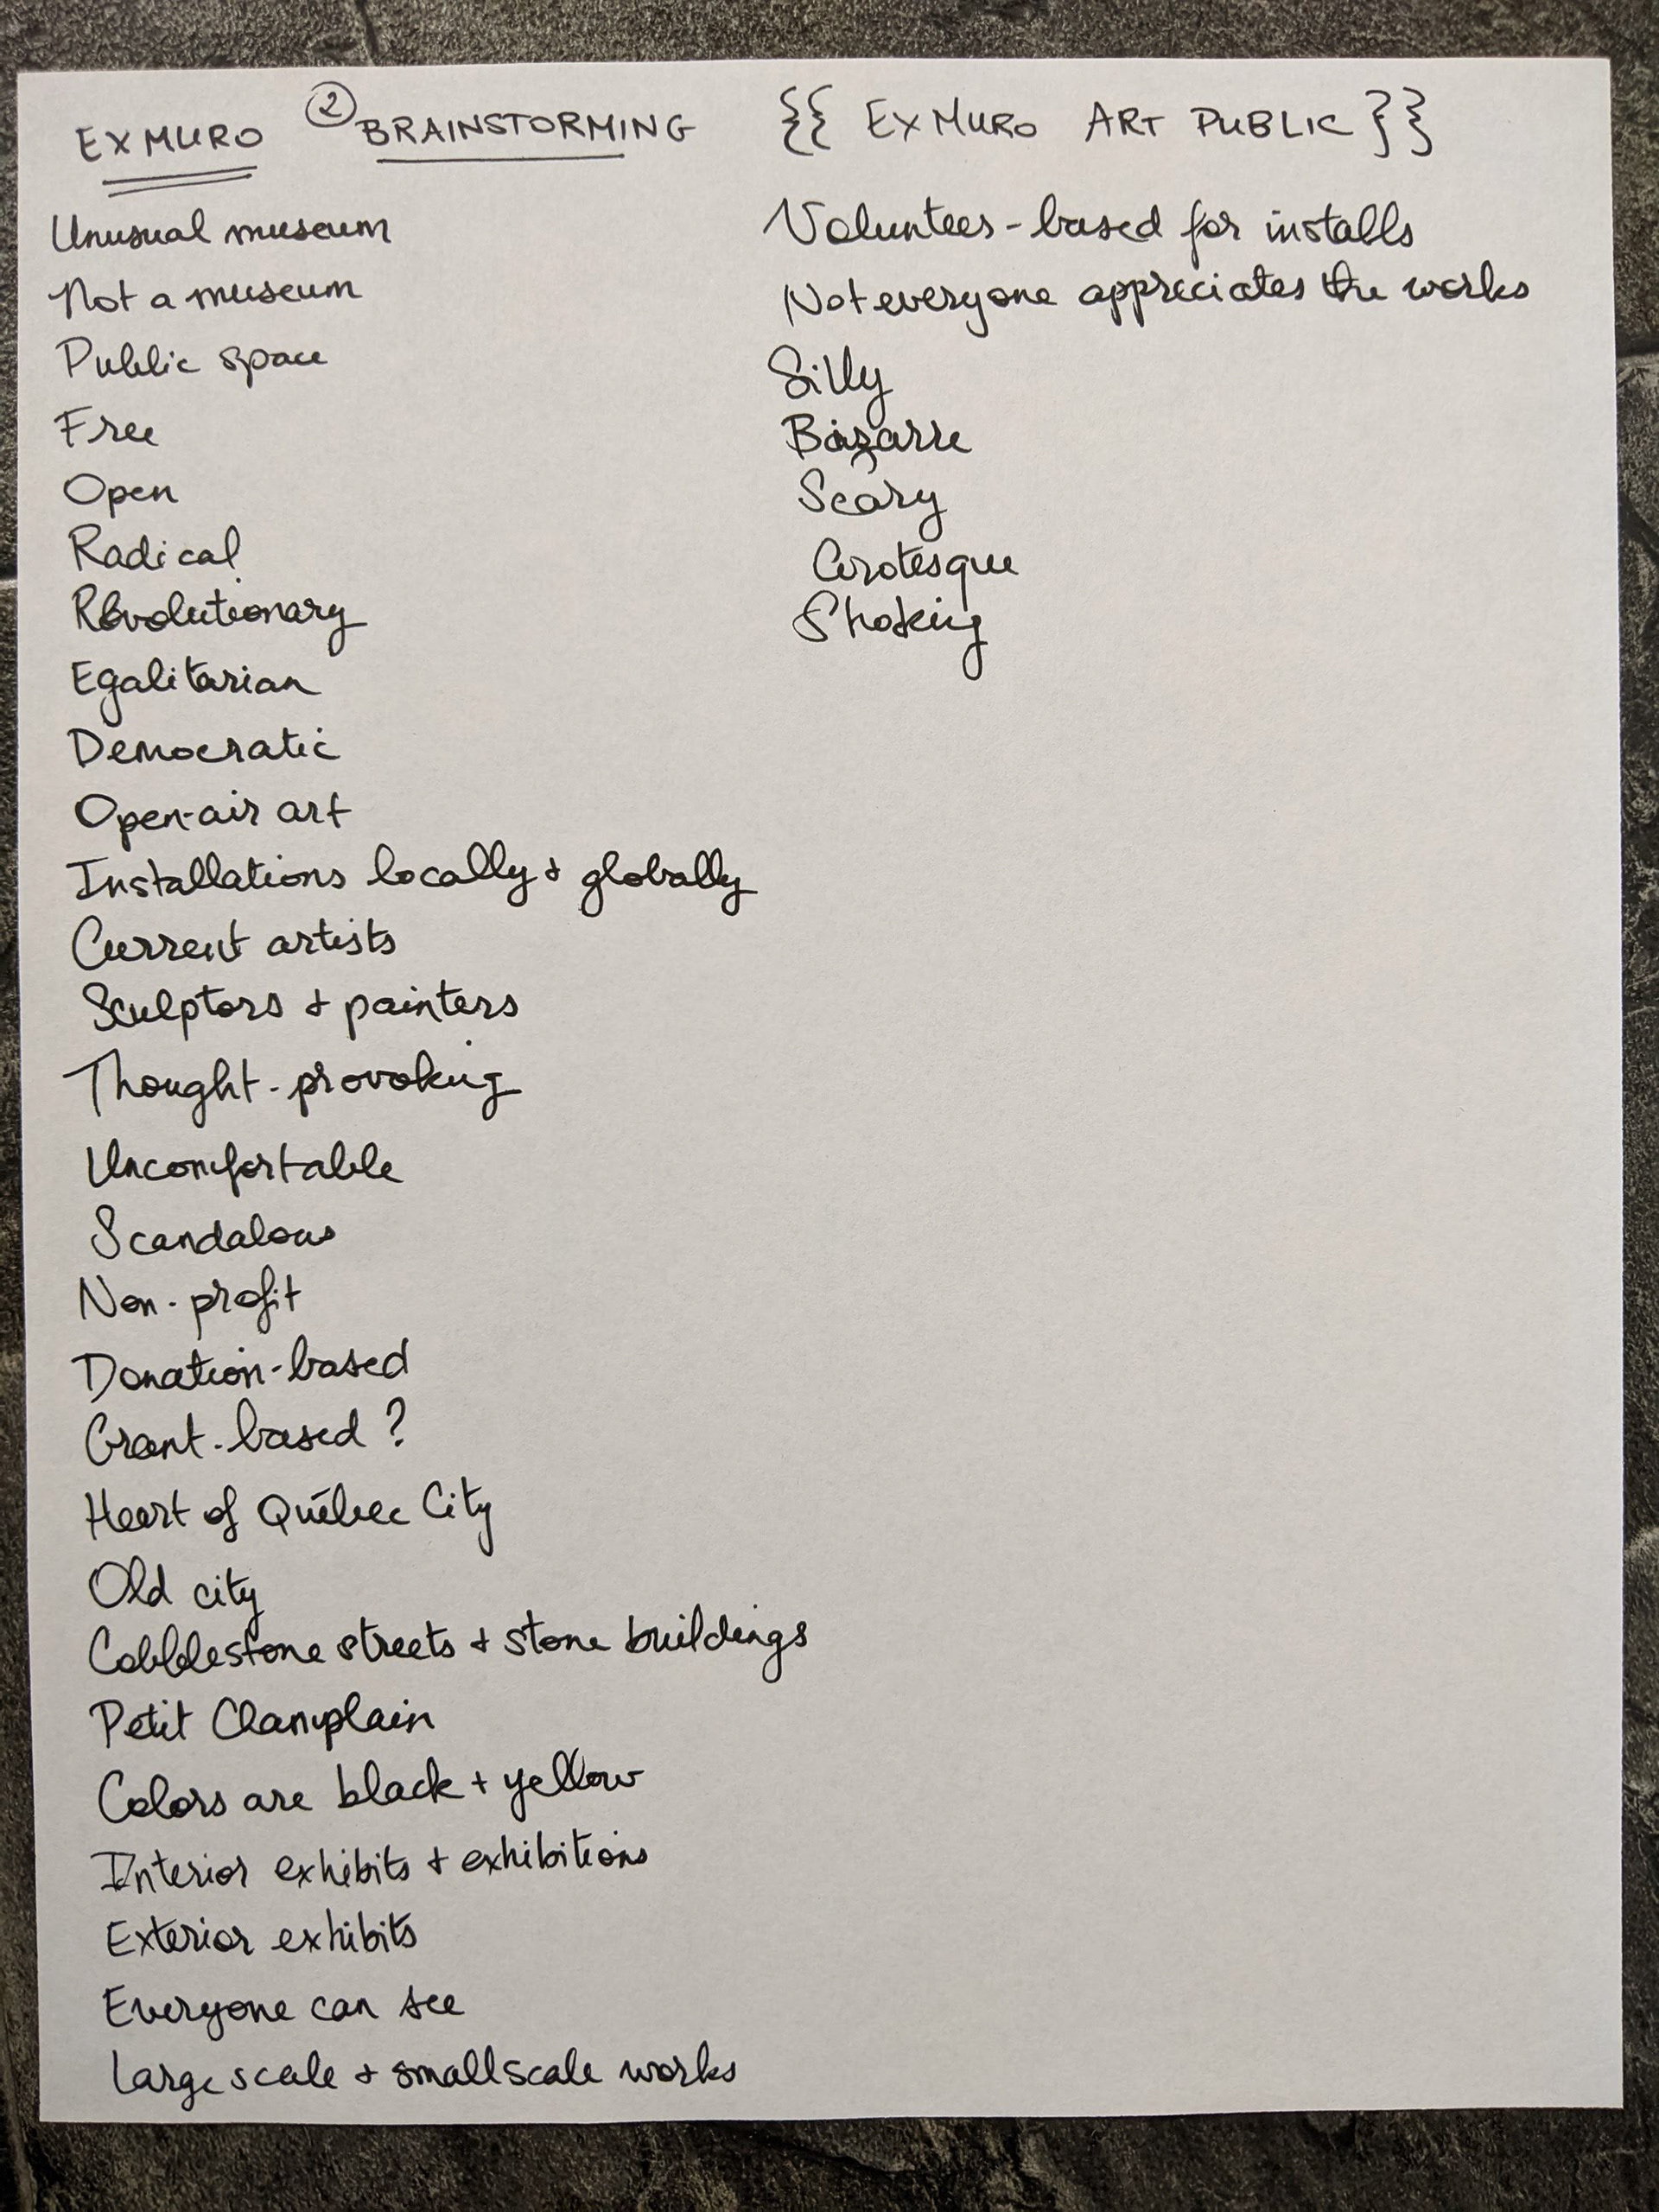 EXMURO ② BRAINSTORMING {{ EXMURO ART PUBLIC }}
Unusual museum
Not a museum
Public space
Free
Open
Radical
Revolutionary
Egalitarian
Democratic
Open-air art
Installations locally + globally
Current artists
Sculptors + painters
Thought-provoking
Uncomfortable
Scandalous
Non-profit
Donation-based
Grant-based ?
Heart of Québec City
Old city
Cobblestone streets + stone buildings
Petit Clamplain
Colors are black + yellow
Interior exhibits + exhibitions
Exterior exhibits
Everyone can see
Large scale + small scale works
Voluntees-based for installs
Not everyone appreciates the works
Silly
Bizarre
Scary
Grotesque
Shoking